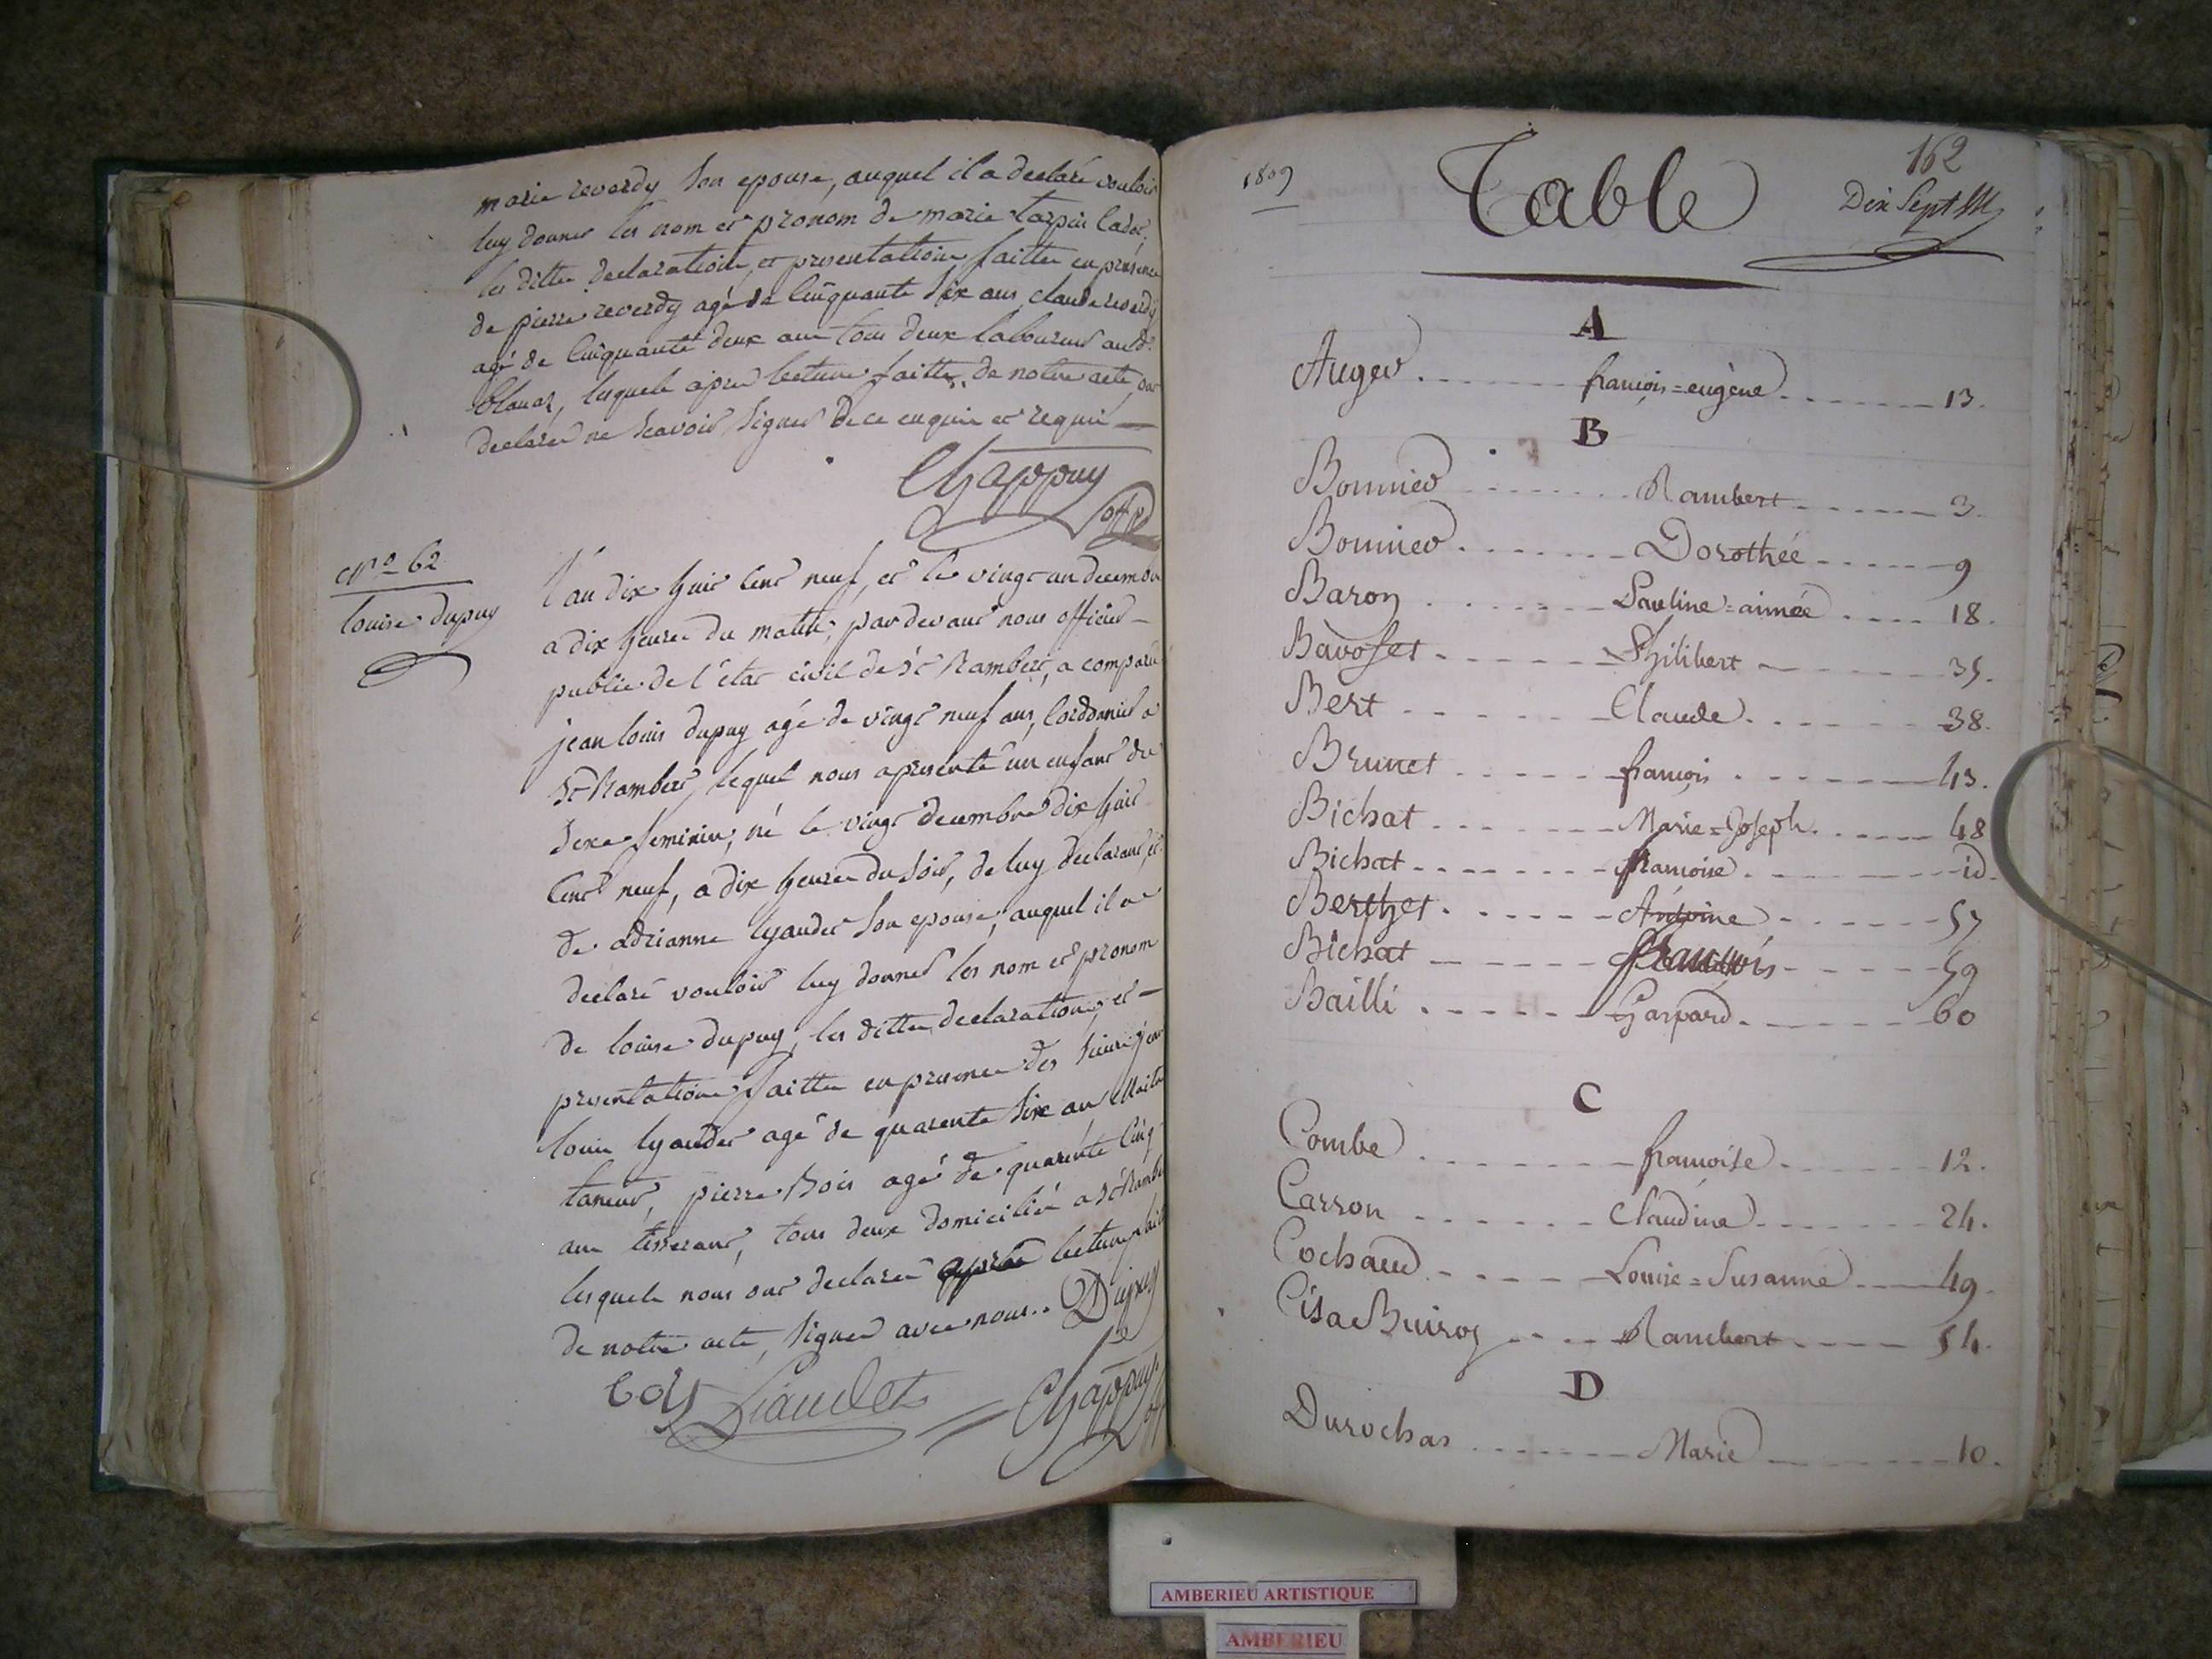 marie reverdy son epouse, auquel il a declaré vouloir
luy donner les nom et pronom de marie tarpin
les dittes declarations et presentations faittes en presence
de pierre reverdy agé de cinquante six ans, claude reverdy
agé de cinquante deux ans tous deux laboureurs aud.
blanaz, lesquels apres lecture faitte de notre acte, ont
declaré ne scavoir signer de ce enquis et requis
Chappuy
off
N.º 62
louise dupuy
l'an dix huit cent neuf, et le vingt un decembre
a dix heures du matin, pardevant nous officier
public de l'état civil de St Rambert, a comparu
jean louis dupuy agé de vingt neuf ans, cordonnier a
St Rambert, lequel nous a presenté un enfant du
sexe feminin, né le vingt decembre dix huit
cent neuf, a dix heures du soir, de luy declarant, et
de adrianne lyaudet son epouse, auquel il a
declaré vouloir luy donner les nom et pronom
de louise dupuy, les dittes declarations, et
presentations faittes en presence des sieurs jean
louis lyaudet agé de quarente six ans
taneur, pierre agé de quarente cinq
ans tisserant, tous deux domiciliés a St Rambert
lesquels nous ont declarés après lecture faitte
de notre acte, signer avec nous.. Dupuy
Liaudet Chappuy off
1809
Table
162
Dix Sept
A
Auger françois=eugène 13.
B
Bonnier Rambert 3.
Bonnier Dorothée 9
Baron Pauline=aimée 18.
Bavoset Philibert 35.
Bert Claude 38.
Brunet françois 43.
Bichat Marie=Joseph 48
Bichat françoise id.
Berthet Antoine 57
Bichat françois 59
Bailli Gaspard 60
C
Combe françoise 12.
Carron Claudine 24.
Cochaud Louise=Susanne 49.
Cisa Buiroz Rambert 54.
D
Durochas Marie 10.
AMBERIEU ARTISTIQUE
AMBERIEU